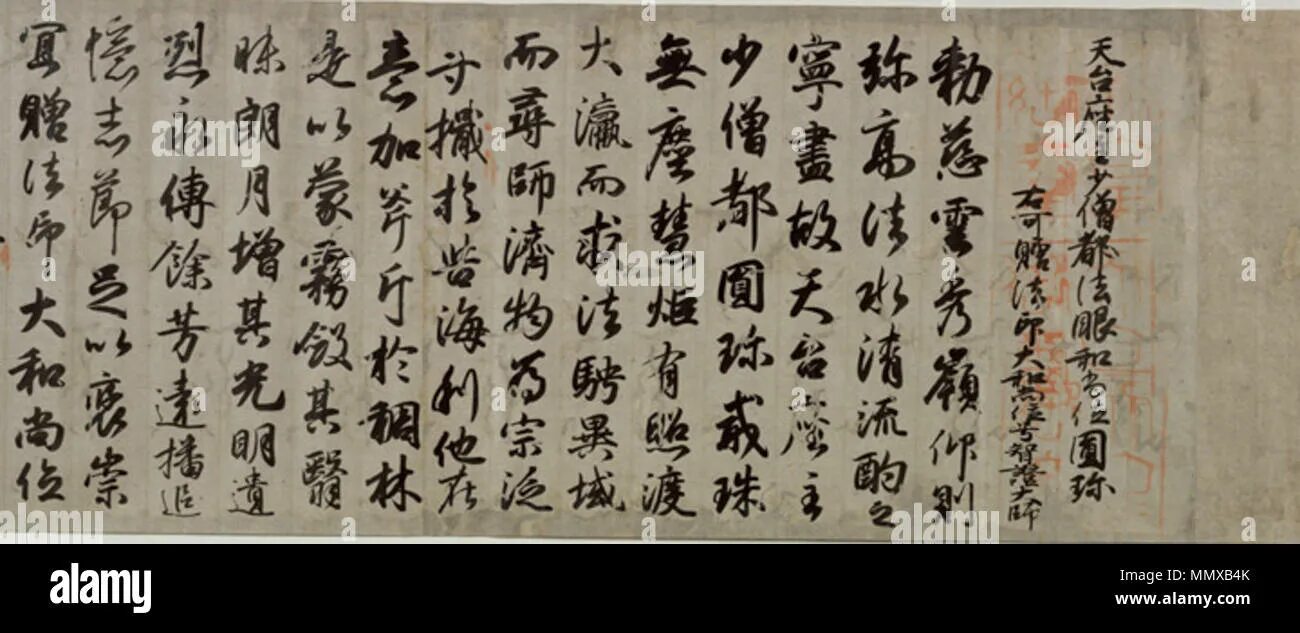 天台座主少僧都法眼和尚位圓珎
右可贈法印大和尚位号智證大師
勅慈雲秀嶺仰則
弥高法水清流酌之
寧盡故天台座主
少僧都圓珎戒珠
無塵慧炬有照渡
大瀛而求法騁異域
而尋師濟物為宗泛
寸檝於苦海利他在
意加斧斤於稠林
是以蒙霧斂其翳
昧朗月增其光明遺
烈永傳餘芳遠播追
憶志節足以褒崇
冝贈法印大和尚位
alamy
Image ID: MMXB4K
www.alamy.com